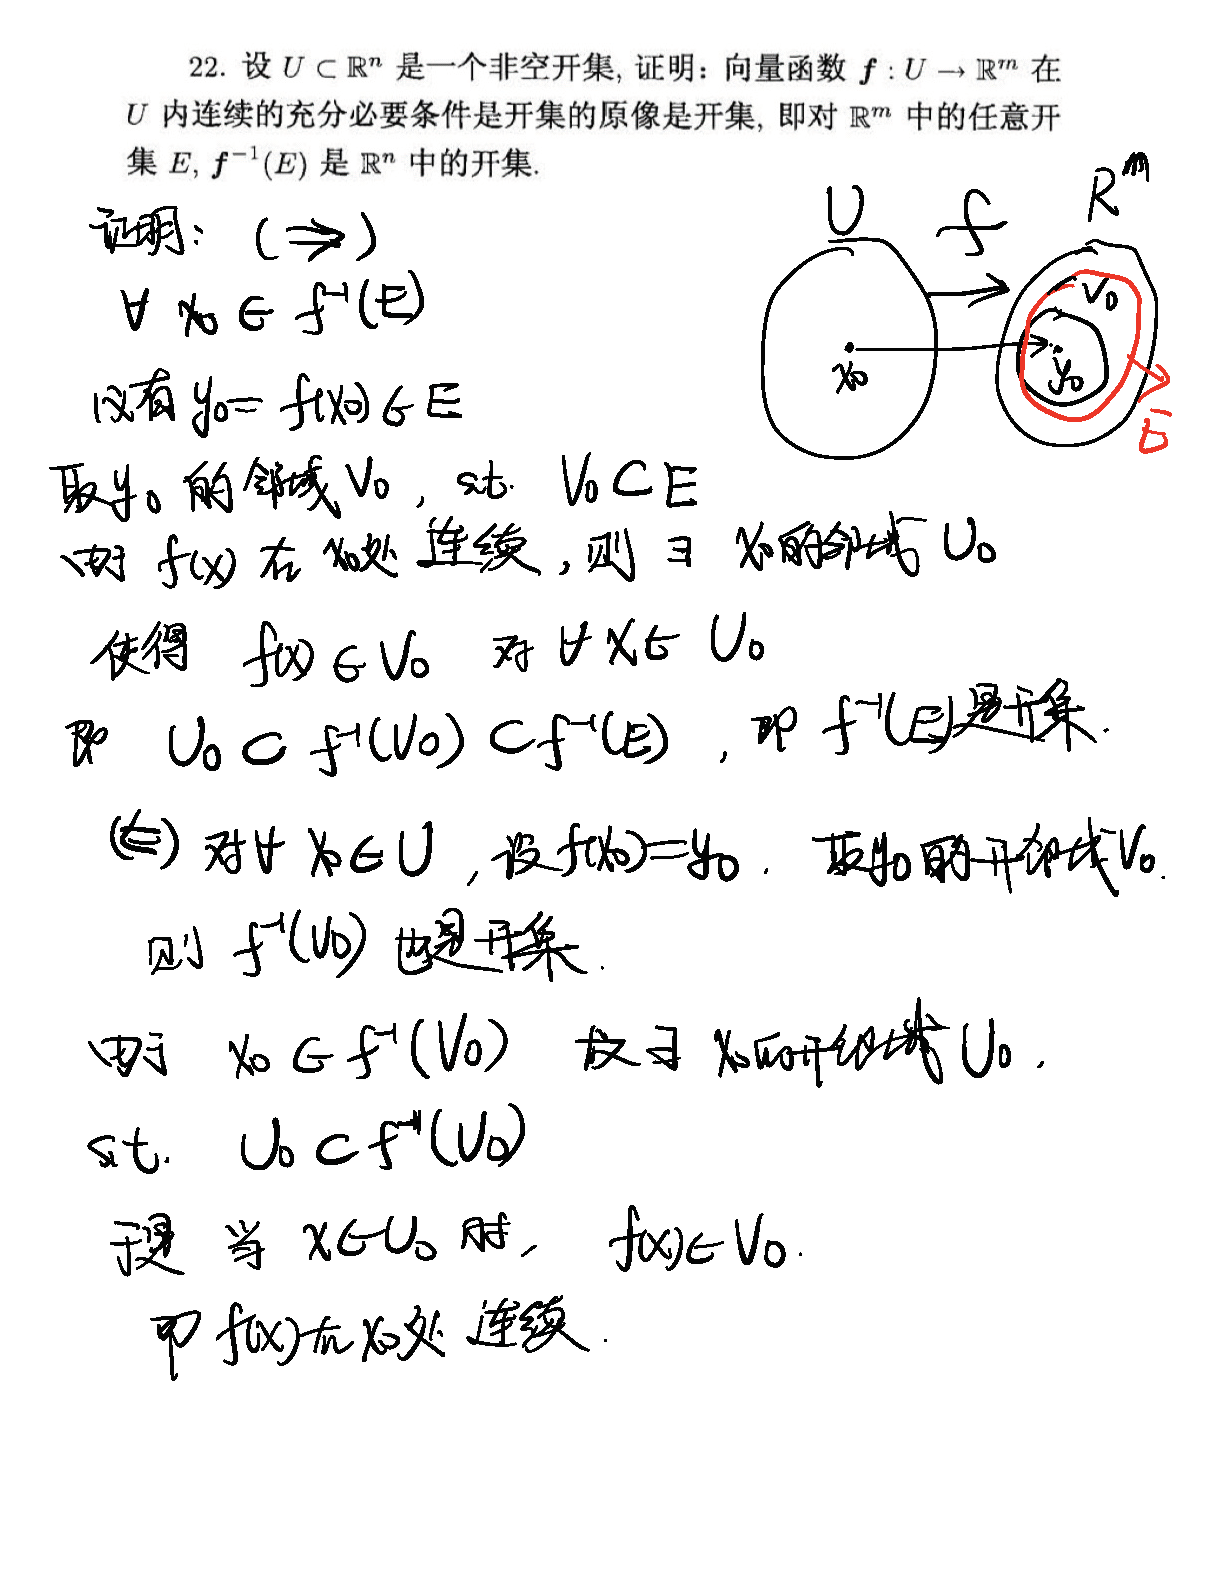 22. 设 U ⊂ ℝⁿ 是一个非空开集, 证明: 向量函数 f : U → ℝᵐ 在
U 内连续的充分必要条件是开集的原像是开集, 即对 ℝᵐ 中的任意开
集 E, f⁻¹(E) 是 ℝⁿ 中的开集.
U f Rᵐ
V₀
x₀ y₀
E
证明: (⇒)
∀ x₀ ∈ f⁻¹(E)
设有 y₀ = f(x₀) ∈ E
取 y₀ 的邻域 V₀, s.t. V₀ ⊂ E
由于 f(x) 在 x₀处 连续, 则 ∃ x₀的邻域 U₀
使得 f(x) ∈ V₀ 对 ∀ x ∈ U₀
即 U₀ ⊂ f⁻¹(V₀) ⊂ f⁻¹(E), 即 f⁻¹(E)是开集.
(⇐) 对∀ x₀ ∈ U, 设 f(x₀)=y₀. 取y₀的开邻域V₀.
则 f⁻¹(V₀) 也是开集.
由于 x₀ ∈ f⁻¹(V₀) 故∃ x₀的开邻域 U₀.
s.t. U₀ ⊂ f⁻¹(V₀)
于是 当 x∈U₀ 时, f(x)∈V₀.
即 f(x)在 x₀处 连续.